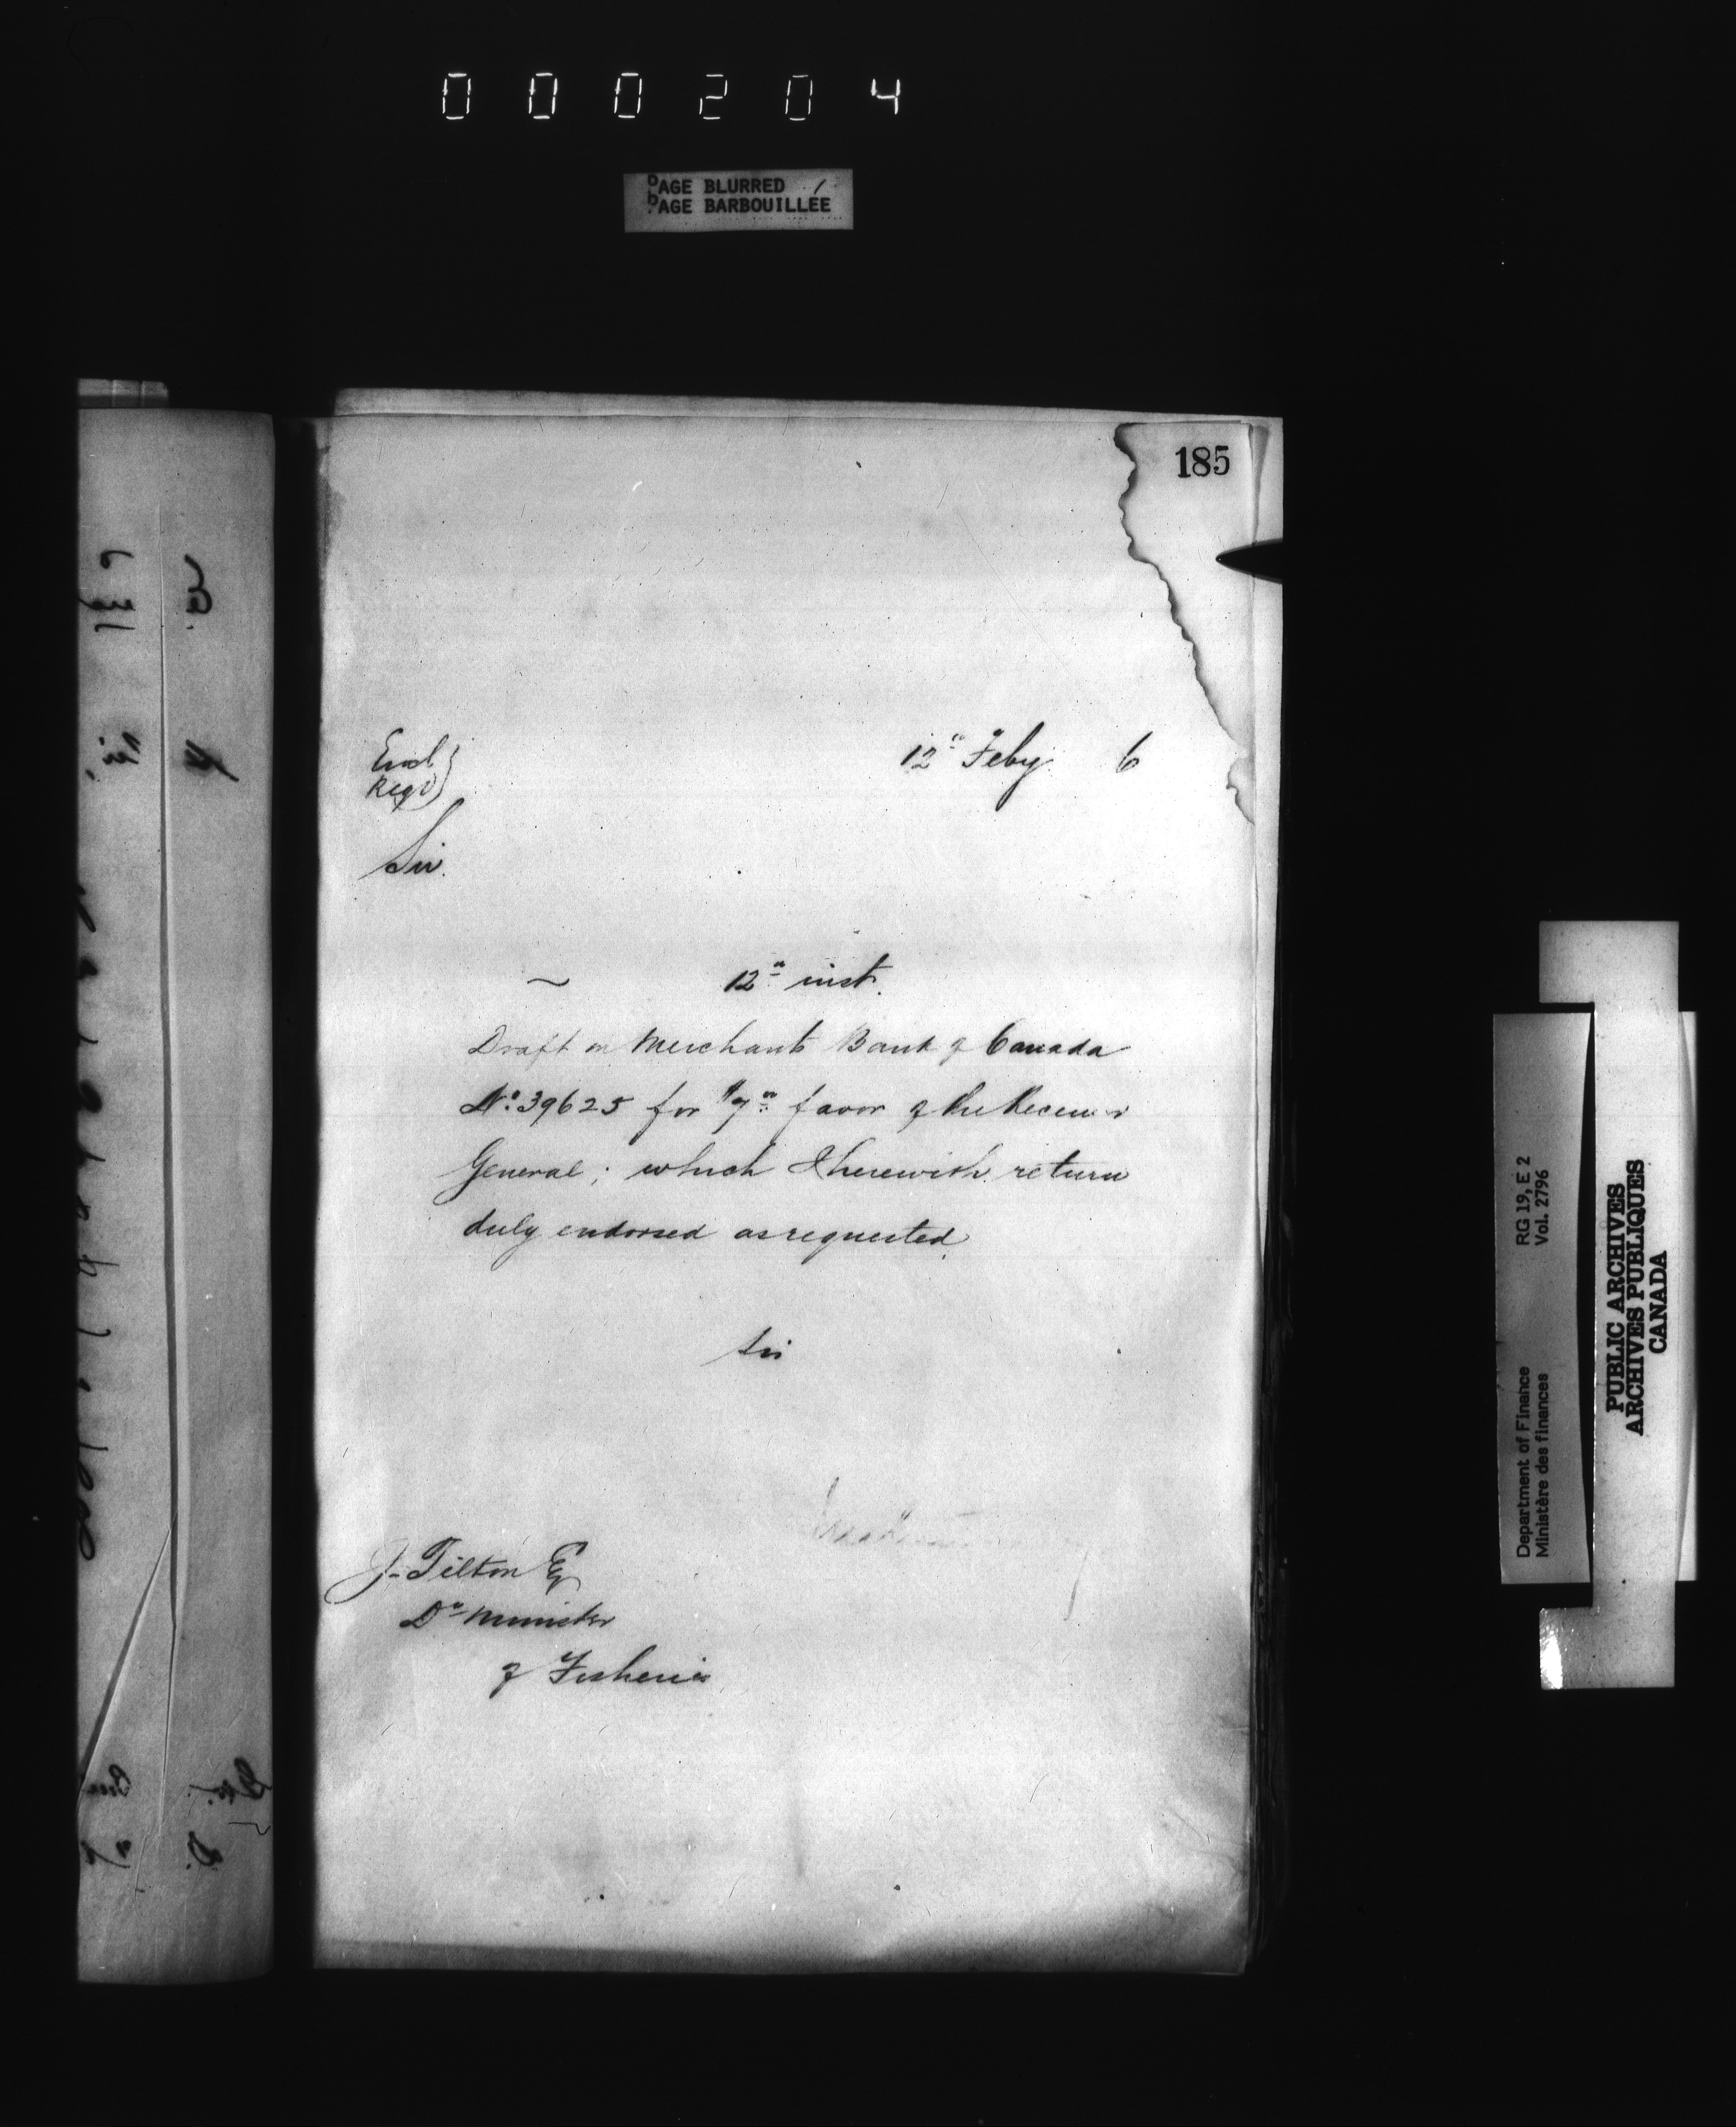 000204
PAGE BLURRED
PAGE BARBOUILLÉE
185
Encl
Regd
12th Feby 6
Sir.
12th inst.
Draft on Merchants Bank of Canada
No. 39625 for $7 favor of the Receiver
General; which I herewith return
duly endorsed as requested
Sir
J. Tilton Esq
Dy Minister
of Fisheries
Department of Finance RG 19, E 2
Ministère des finances Vol. 2796
PUBLIC ARCHIVES
ARCHIVES PUBLIQUES
CANADA